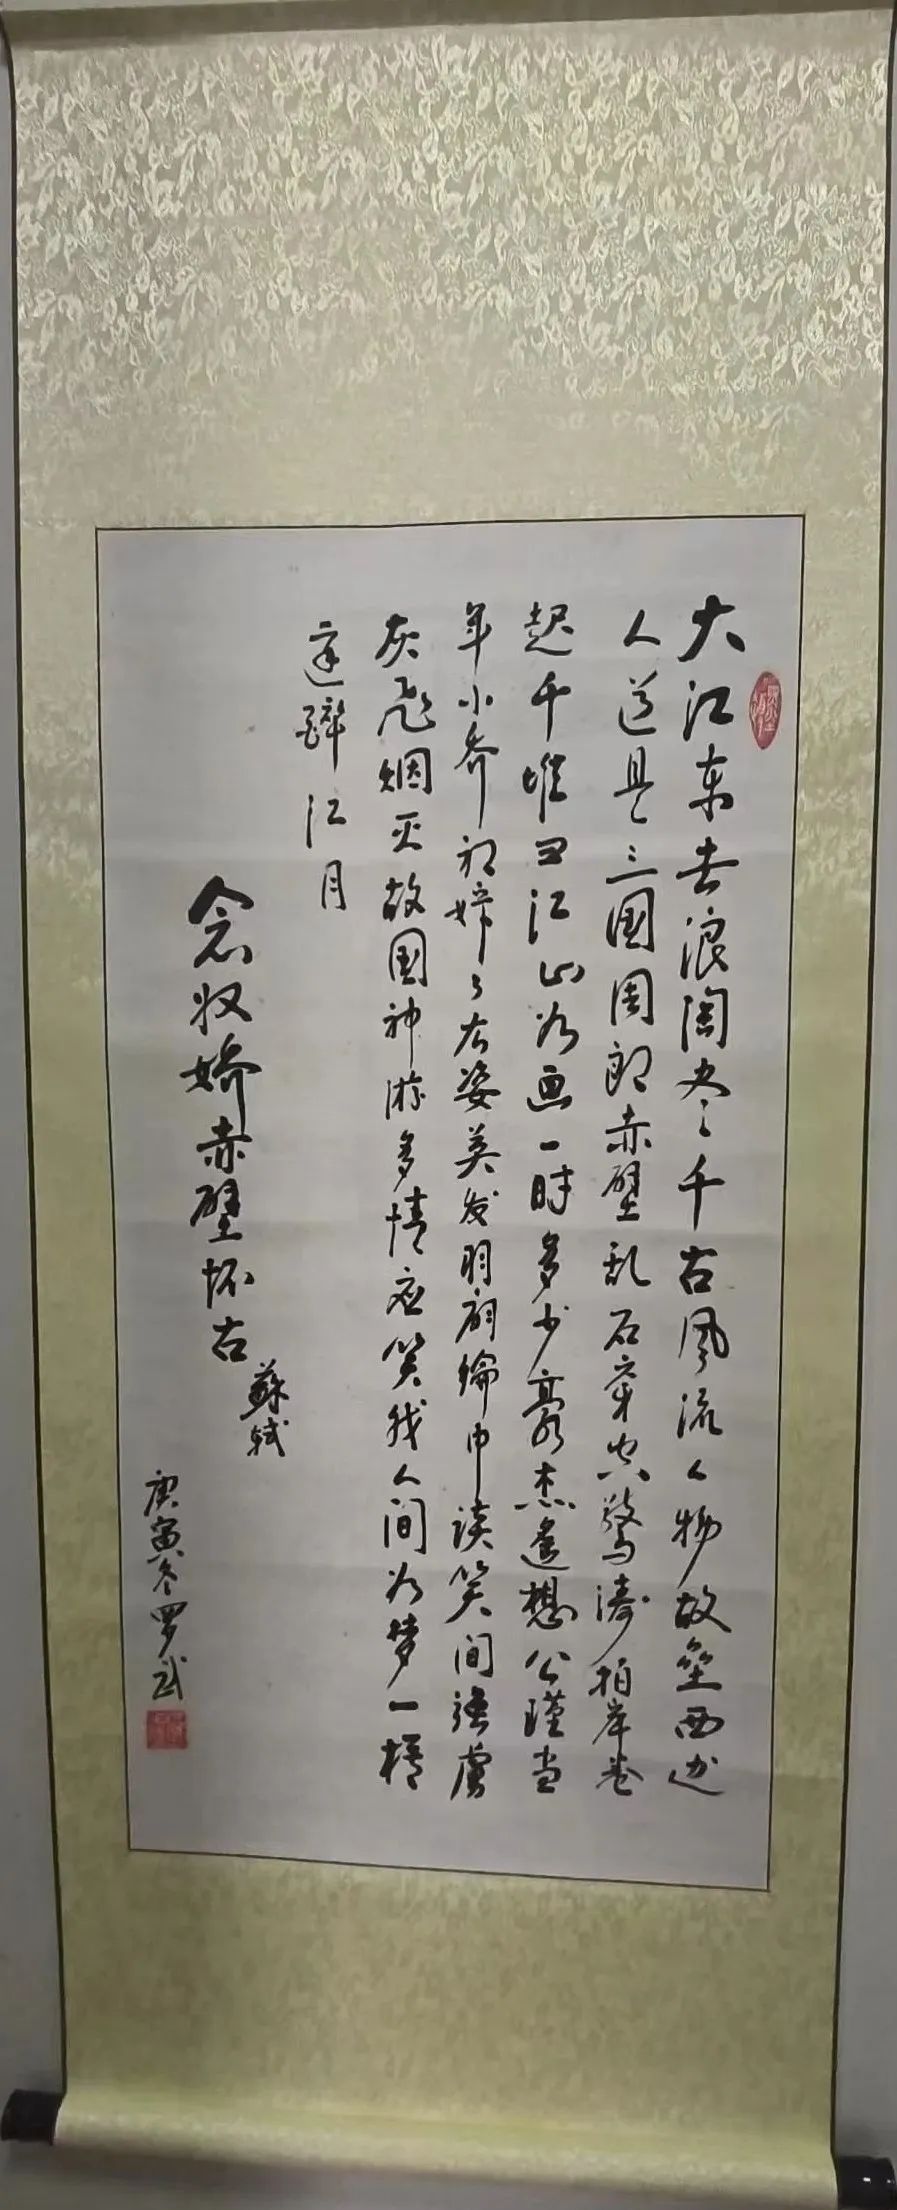 大江东去浪陶尽千古风流人物故垒西边
人道是三國周郎赤壁乱石穿空驚涛拍岸卷
起千堆雪江山如画一时多少豪杰遥想公瑾当
年小乔初嫁了雄姿英发羽扇纶巾谈笑间强虏
灰飛烟灭故国神游多情应笑我人间如梦一樽
还酹江月
念奴娇赤壁怀古
蘇轼
庚寅冬罗武